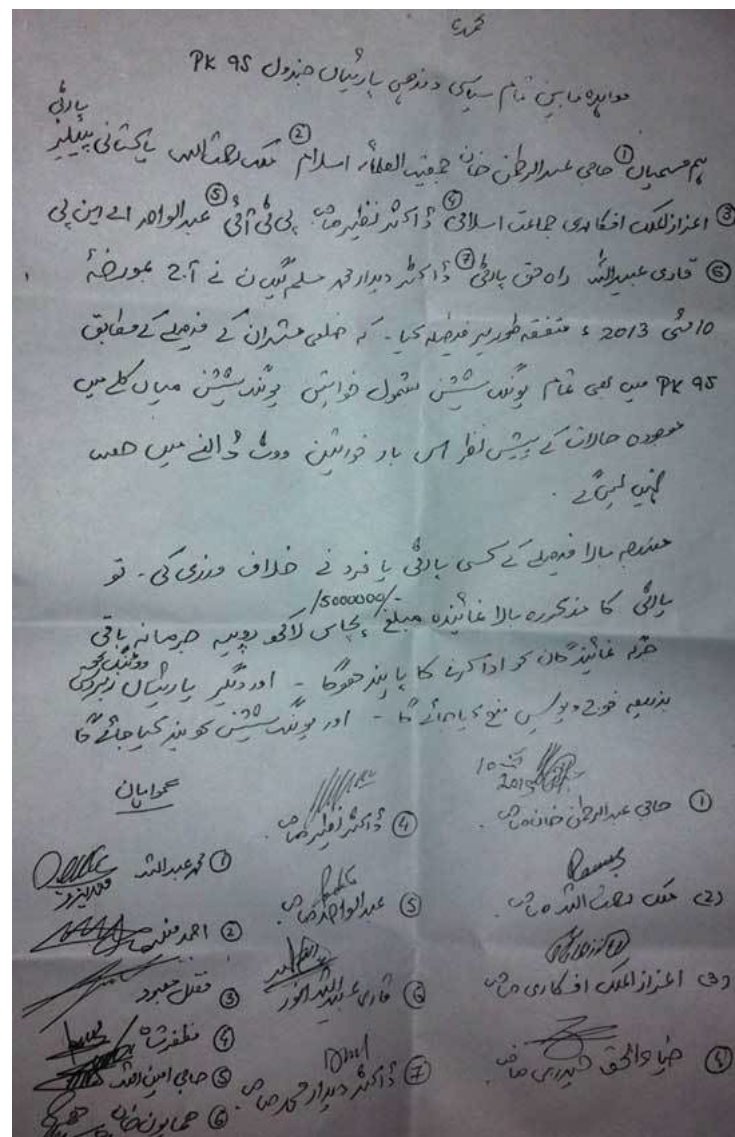 معاہدہ مابین تمام سیاسی و مذہبی پارٹیاں جندول PK 95
ہم مسمیان ① حاجی عبدالرحمٰن خان جمعیت العلمائے اسلام ② ملک رحمت اللہ پاکستانی پیپلیز پارٹی
③ اعزاز الملک افکاری جماعت اسلامی ④ ڈاکٹر نظیر صاحب پی ٹی آئی ⑤ عبدالواحد اے این پی
⑥ قاری عبیداللہ راہ حق پارٹی ⑦ ڈاکٹر دیدار محمد مسلم لیگ ن نے آج بمورخہ
10 مئی 2013ء متفقہ طور پر فیصلہ کیا - کہ ضلعی مشران کے فیصلے کے مطابق
PK 95 میں بھی تمام پولنگ سٹیشن بشمول خواتین پولنگ سٹیشن میاں کلے میں
موجودہ حالات کے پیش نظر اس بار خواتین ووٹ ڈالنے میں حصہ
نہیں لیں گے .
مندرجہ بالا فیصلے کے کسی پارٹی یا فرد نے خلاف ورزی کی - تو
پارٹی کا مذکورہ بالا نمائیندہ مبلغ /5000000/- پچاس لاکھ روپیہ جرمانہ باقی
نمائیندگان کو ادا کرنے کا پابند ھوگا - اور دیگر پارٹیاں زبردستی
بذریعہ فوج و پولیس منع کیا جائے گا - اور پولنگ سٹیشن کو بند کیا جائے گا
10
2013
① حاجی عبدالرحمٰن خان صاحب
④ ڈاکٹر نظیر صاحب
① محمد عبداللہ
② ملک رحمت اللہ صاحب
⑤ عبدالواحد صاحب
② احمد
③ اعزاز الملک افکاری صاحب
⑥ قاری عبیداللہ انور
③ معبود
④ مظفر شاہ
④ ضیاء الحق حیدری صاحب
⑦ ڈاکٹر دیدار محمد صاحب
⑤ حاجی امین اللہ
⑥ ھمایون خان